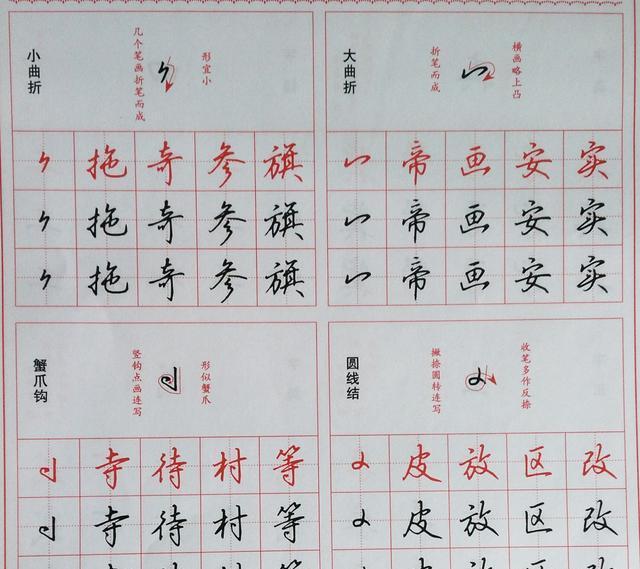 小曲折
几个笔画折笔而成
形宜小
拖奇参旗
拖奇参旗
拖奇参旗
大曲折
折笔而成
横画略上凸
帝画安实
帝画安实
帝画安实
蟹爪钩
竖钩点画连写
形似蟹爪
寺待村等
寺待村等
圆线结
撇捺圆转连写
收笔多作反捺
皮放区改
皮放区改